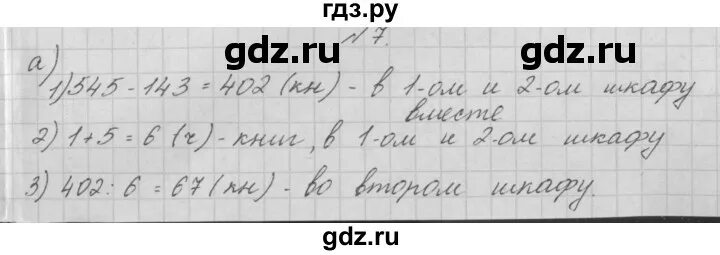 гдз.ру
№7.
gdz.ru gdz.ru
а)
1) 545 - 143 = 402 (кн) - в 1-ом и 2-ом шкафу
вместе
2) 1 + 5 = 6 (ч) - книг, в 1-ом и 2-ом шкафу
3) 402 : 6 = 67 (кн) - во втором шкафу.
gdz.ru gdz.ru